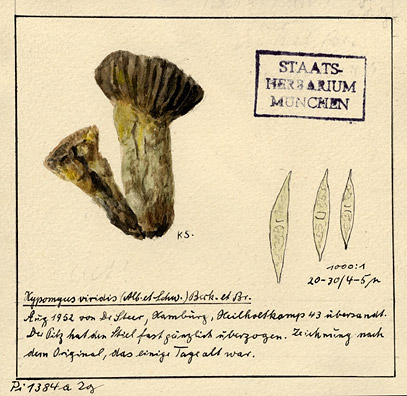 STAATS-
HERBARIUM
MÜNCHEN
KS.
1000:1
20-30/4-5 µ
Hypomyces viridis (Alb. et Schw.) Berk. et Br.
Aug 1952 von Dr Steer, Hamburg, Heilholtkamp 43 übersandt.
Der Pilz hat den Stiel fast gänzlich überzogen. Zeichnung nach
dem Original, das einige Tage alt war.
Pi 1384a